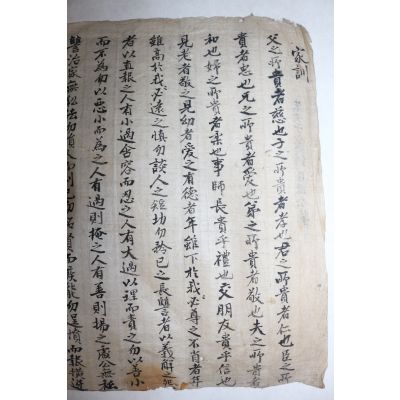 家訓
父之所貴者慈也子之所貴者孝也君之所貴者仁也臣之所
貴者忠也兄之所貴者愛也弟之所貴者敬也夫之所貴者
和也婦之所貴者柔也事師長貴乎禮也交朋友貴乎信也
見老者敬之見幼者愛之有德者年雖下於我必尊之不肖者年
雖高於我必遠之慎勿談人之短切勿矜己之長讐者以義解怨
者以直報之人有小過含容而忍之人有大過以理而責之勿以善小
而不為勿以惡小而為之人有過則掩之人有善則揚之處公無私
讐治家無私法勿損人而利己勿妒賢而疾能勿逞憤而報橫逆